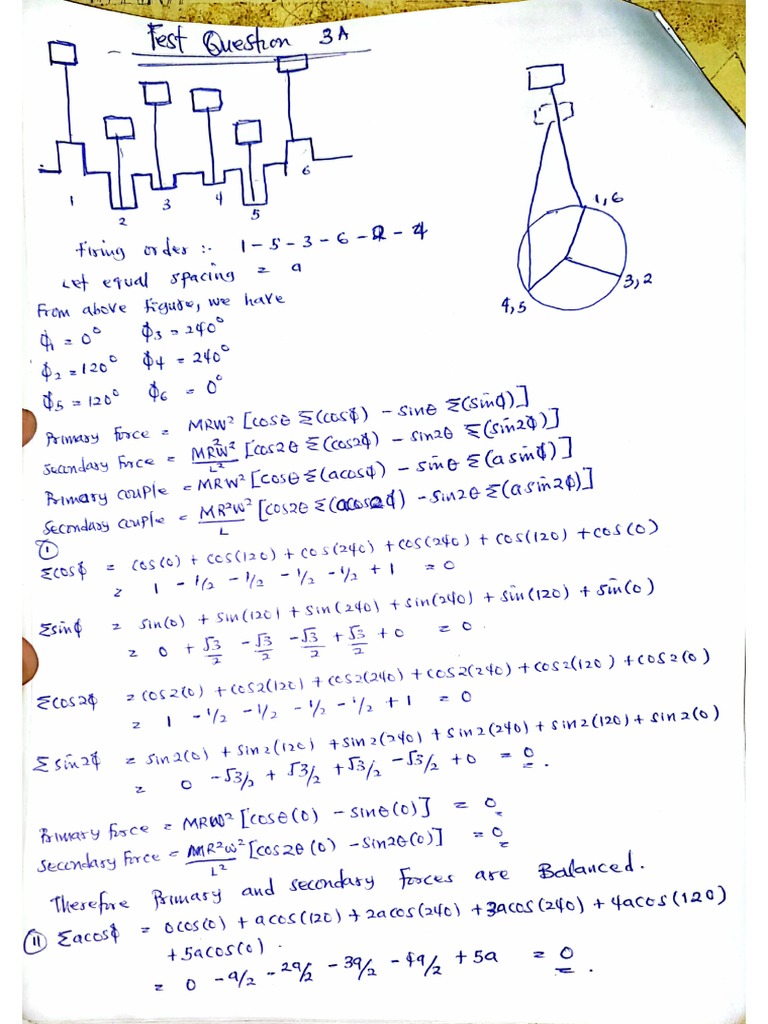 Test Question 3A
1 2 3 4 5 6
1,6
3,2
4,5
firing order :- 1-5-3-6-2-4
Let equal spacing = a
From above figure, we have
ϕ1 = 0° ϕ3 = 240°
ϕ2 = 120° ϕ4 = 240°
ϕ5 = 120° ϕ6 = 0°
Primary force = MRW² [cosθ Σ(cosϕ) - sinθ Σ(sinϕ)]
Secondary force = MR²W²/L² [cos2θ Σ(cos2ϕ) - sin2θ Σ(sin2ϕ)]
Primary couple = MRW² [cosθ Σ(acosϕ) - sinθ Σ(a sinϕ)]
Secondary couple = MR²W²/L [cos2θ Σ(acos2ϕ) - sin2θ Σ(a sin2ϕ)]
(i)
Σcosϕ = cos(0) + cos(120) + cos(240) + cos(240) + cos(120) + cos(0)
= 1 - 1/2 - 1/2 - 1/2 - 1/2 + 1 = 0
Σsinϕ = sin(0) + sin(120) + sin(240) + sin(240) + sin(120) + sin(0)
= 0 + √3/2 - √3/2 - √3/2 + √3/2 + 0 = 0.
Σcos2ϕ = cos2(0) + cos2(120) + cos2(240) + cos2(240) + cos2(120) + cos2(0)
= 1 - 1/2 - 1/2 - 1/2 - 1/2 + 1 = 0
Σsin2ϕ = sin2(0) + sin2(120) + sin2(240) + sin2(240) + sin2(120) + sin2(0)
= 0 - √3/2 + √3/2 + √3/2 - √3/2 + 0 = 0.
Primary force = MRW² [cosθ(0) - sinθ(0)] = 0
Secondary force = MR²W²/L² [cos2θ(0) - sin2θ(0)] = 0
Therefore Primary and secondary Forces are Balanced.
(ii) Σacosϕ = 0cos(0) + acos(120) + 2acos(240) + 3acos(240) + 4acos(120)
+ 5acos(0).
= 0 - a/2 - 2a/2 - 3a/2 - 4a/2 + 5a = 0.